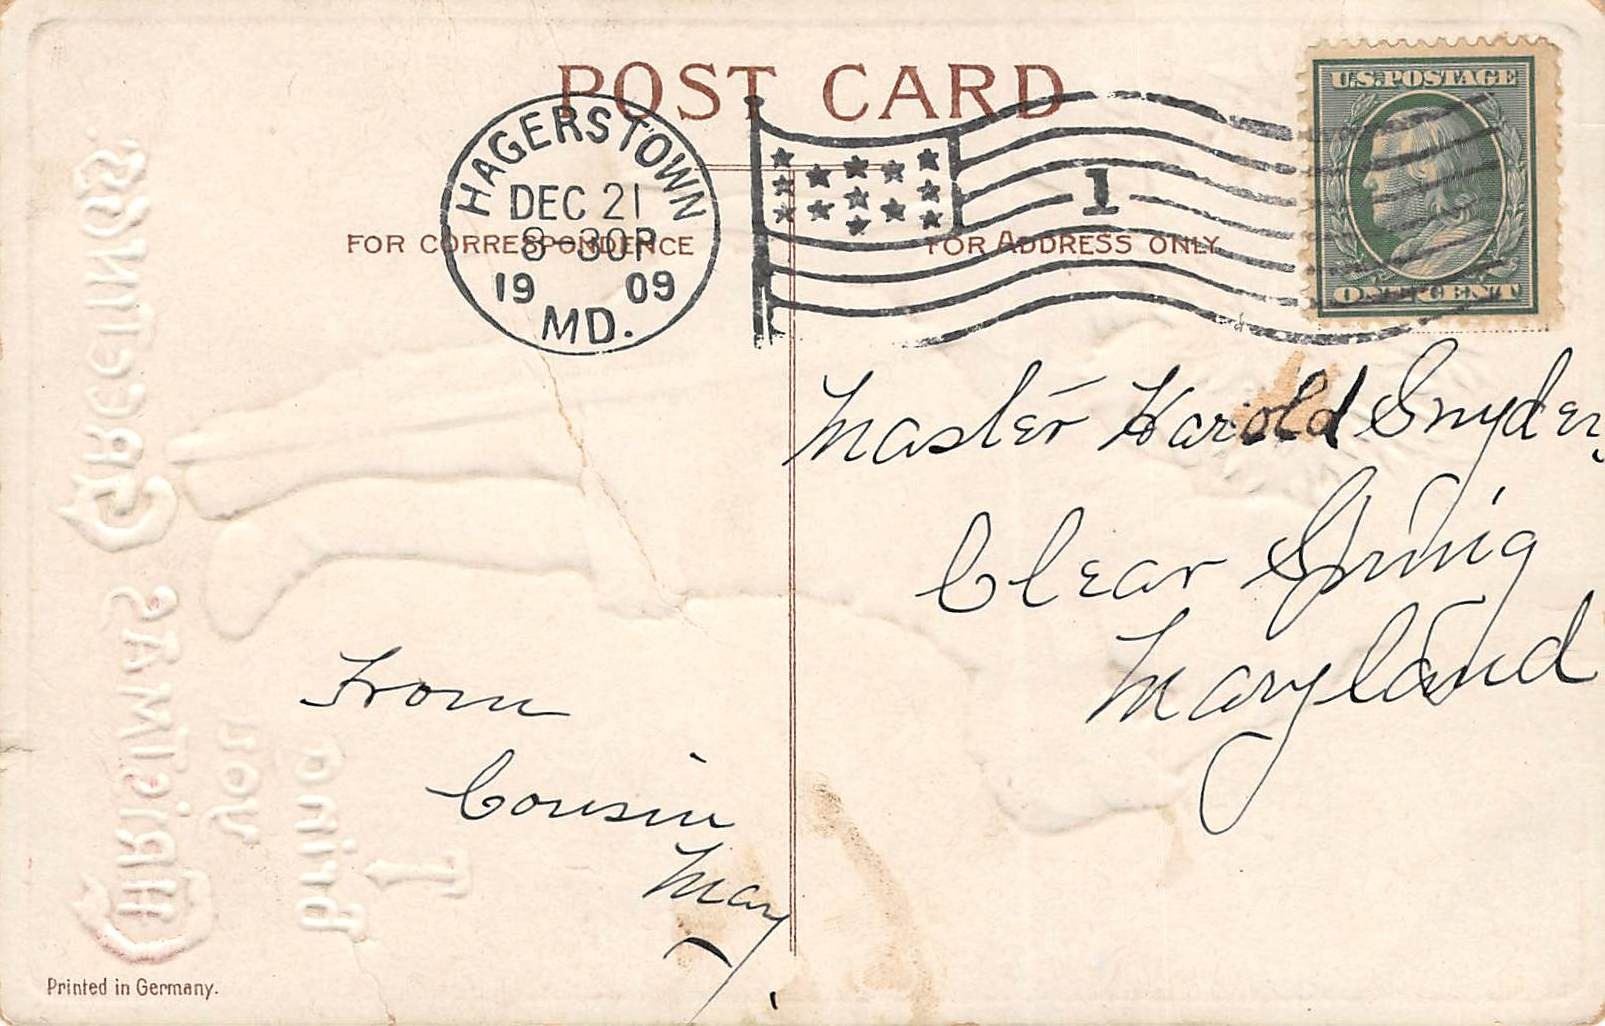 POST CARD
HAGERSTOWN
DEC 21
8-30P
19 09
MD.
1
U.S. POSTAGE
ONE CENT
FOR CORRESPONDENCE
FOR ADDRESS ONLY
Master Harold Snyder,
Clear Spring
Maryland
From
Cousin
May
I
bring
you
CHRISTMAS GREETINGS.
Printed in Germany.